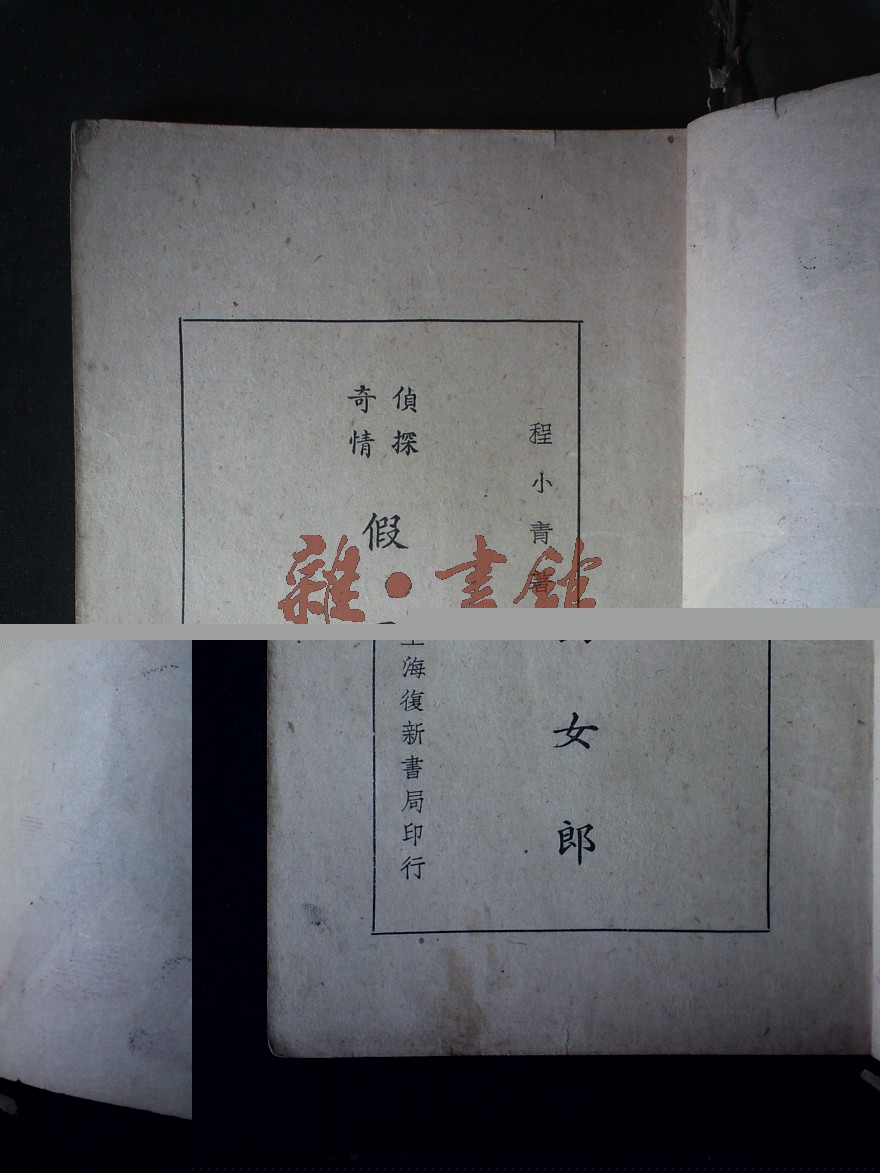 程小青著
偵探
奇情
假
女郎
上海復新書局印行
雜·書館